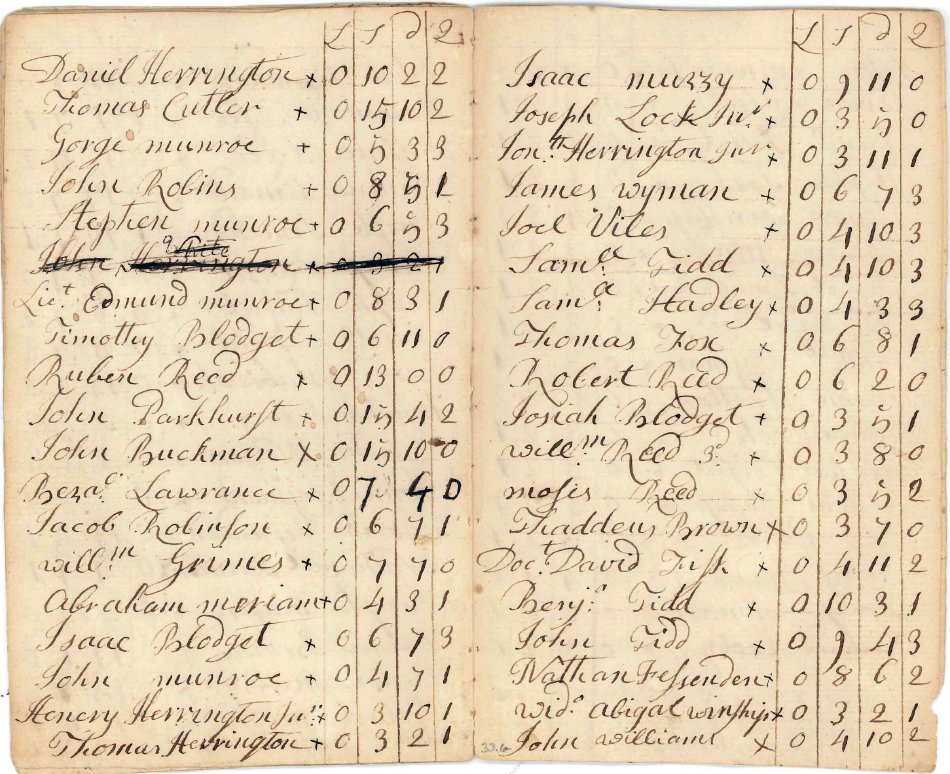 L S d 2
Daniel Herrington x 0 10 2 2
Thomas Cutler x 0 15 10 2
Gorge munroe + 0 5 3 3
John Robins + 0 8 5 1
Stephen munroe + 0 6 5 3
White
John Herrington x 0 3 2 1
Lie.t Edmund munroe + 0 8 3 1
Timothy Blodget + 0 6 11 0
Ruben Reed x 0 13 0 0
John Parkhurst + 0 15 4 2
John Buckman X 0 15 10 0
Beza.l Lawrance x 0 7 4 0
Jacob Robinson x 0 6 7 1
will.m Grimes x 0 7 7 0
Abraham meriam + 0 4 3 1
Isaac Blodget x 0 6 7 3
John munroe x 0 4 7 1
Henery Herrington Jur x 0 3 10 1
Thomas Herrington x 0 3 2 1
33.6
L S d 2
Isaac muzzy x 0 9 11 0
Joseph Lock Ju.r x 0 3 5 0
Jon.th Herrington Jur x 0 3 11 1
James wyman x 0 6 7 3
Joel Viles x 0 4 10 3
Sam.ll Tidd x 0 4 10 3
Sam.ll Hadley x 0 4 3 3
Thomas Fox x 0 6 8 1
Robert Reed x 0 6 2 0
Josiah Blodget + 0 3 5 1
will.m Reed 3.d x 0 3 8 0
moses Reed x 0 3 5 2
Thaddeus Brown x 0 3 7 0
Doc.t David Fisk x 0 4 11 2
Benj.a Tidd x 0 10 3 1
John Tidd x 0 9 4 3
Nathan Fessenden x 0 8 6 2
wid.o abigal winship x 0 3 2 1
John williams x 0 4 10 2